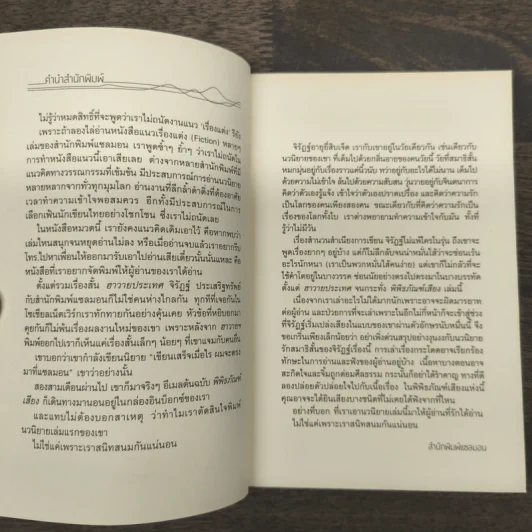 คำนำสำนักพิมพ์
ไม่รู้ว่าหมดสิทธิ์ที่จะพูดว่าเราไม่ถนัดงานแนว 'เรื่องแต่ง' รึยัง
เพราะถ้าลองไล่อ่านหนังสือแนวเรื่องแต่ง (Fiction) หลายๆ
เล่มของสำนักพิมพ์แซลมอน เราพูดซ้ำๆ ย้ำๆ ว่าเราไม่ถนัดใน
การทำหนังสือแนวนี้เอาเสียเลย ต่างจากหลายสำนักพิมพ์ที่มี
แนวคิดทางวรรณกรรมที่เข้มข้น มีประสบการณ์การอ่านนวนิยาย
หลายหลากจากทั่วทุกมุมโลก อ่านงานที่ลึกล้ำดำดิ่งที่ต้องอาศัย
เวลาทำความเข้าใจพอสมควร อีกทั้งมีประสบการณ์ในการ
เลือกเฟ้นนักเขียนไทยอย่างโชกโชน ซึ่งเราไม่ถนัดเลย
ในหนังสือหมวดนี้ เรายังคงแนวคิดเดิมเอาไว้ คือหากพบว่า
เล่มไหนสนุกจนหยุดอ่านไม่ลง หรือเมื่ออ่านจบแล้วเราอยากรีบ
โทร.ไปหาเพื่อนให้ออกมารับเอาไปอ่านเสียเดี๋ยวนั้นนั่นแหละ คือ
หนังสือที่เราอยากจัดพิมพ์ให้ผู้อ่านของเราได้อ่าน
ตั้งแต่รวมเรื่องสั้น ฮาวายประเทศ จิรัฏฐ์ ประเสริฐทรัพย์
กับสำนักพิมพ์แซลมอนก็ไม่ใช่คนห่างไกลกัน ทุกทีที่เจอกันใน
โซเชียลเน็ตเวิร์กเราทักทายกันอย่างคุ้นเคย หัวข้อที่หยิบยกมา
คุยกันก็ไม่พ้นเรื่องผลงานใหม่ของเขา เพราะหลังจาก ฮาวายฯ
พิมพ์ออกไปเราก็เห็นแค่เรื่องสั้นเล็กๆ น้อยๆ ที่เขาแจมกับคนอื่น
เขาบอกว่าเขากำลังเขียนนิยาย "เขียนเสร็จเมื่อไร ผมจะตรง
มาที่แซลมอน" เขาว่าอย่างนั้น
สองสามเดือนผ่านไป เขาก็มาจริงๆ อีเมลต้นฉบับ พิพิธภัณฑ์
เสียง ก็เดินทางมานอนอยู่ในกล่องอินบ็อกซ์ของเรา
และแทบไม่ต้องบอกสาเหตุ ว่าทำไมเราตัดสินใจพิมพ์
นวนิยายเล่มแรกของเขา
ไม่ใช่แค่เพราะเราสนิทสนมกันแน่นอน
จิรัฏฐ์อายุยี่สิบเจ็ด เรากับเขาอยู่ในวัยเดียวกัน เช่นเดียวกับ
นวนิยายของเขา ที่เต็มไปด้วยกลิ่นอายของคนวัยนี้ วัยที่สมาธิสั้น
หมกมุ่นอยู่กับเรื่องราวแค่นี้วนับ ทว่าอยู่กับอะไรได้ไม่นาน เต็มไป
ด้วยความไม่เข้าใจ ล้นไปด้วยความสับสน วุ่นวายอยู่กับจินตนาการ
คิดว่าตัวเองรู้จริง เข้าใจว่าตัวเองปราดเปรื่อง และคิดว่าความรัก
เป็นโลกของคนเพียงสองคน ขณะเดียวกับที่คิดว่าความรักเป็น
เรื่องของโลกทั้งใบ เราต่างพยายามทำความเข้าใจกับมัน ทั้งที่
รู้ว่าไม่มีวัน
เรื่องสำนวนสำเนียงการเขียน จิรัฏฐ์ไม่แพ้ใครในรุ่น ถึงเขาจะ
พูดเรื่องยากๆ อยู่บ้าง แต่ก็ไม่ลึกลับจนน่าหมั่นไส้ว่าจะซ่อนเร้น
อะไรนักหนา (เราเป็นพวกหมั่นไส้คนง่าย) แต่เขาก็ไม่กลัวที่จะ
ใช้คำใดอยู่ในบางวรรค ซ่อนนัยอย่างตรงไปตรงมาในบางบรรทัด
ตั้งแต่ ฮาวายประเทศ จนกระทั่ง พิพิธภัณฑ์เสียง เล่มนี้
เนื่องจากเราเล่าอะไรไม่ได้มากนักเพราะอาจจะผิดมารยาท
ต่อผู้อ่าน และป่วยการที่จะเล่าเพราะในอีกไม่กี่หน้าก็จะเข้าสู่ช่วง
ที่จิรัฏฐ์เริ่มเปล่งเสียงในแบบของเขาผ่านตัวอักษรนับหมื่นนี้ จึง
ขอเกริ่นเพียงเล็กน้อยว่า อย่าเพิ่งด่วนสรุปอย่างงงงงกับนวนิยาย
รักสมาธิสั้นของจิรัฏฐ์เรื่องนี้ การเล่าเรื่องกระโดดอาจเรียกร้อง
ทักษะในการอ่านและฟังของผู้อ่านอยู่บ้าง เนื้อหาบางตอนอาจ
สะกิดใจและจิ้มถูกต่อมศีลธรรม กระนั้นก็อย่าได้รำคาญ ทางที่ดี
ลองปล่อยตัวปล่อยใจไปกับเนื้อเรื่อง ในพิพิธภัณฑ์เสียงแห่งนี้
คุณอาจจะได้ยินเสียงบางชนิดที่ไม่เคยได้ฟังจากที่ไหน
อย่างที่บอก ที่เราเอานวนิยายเล่มนี้มาให้ผู้อ่านที่รักได้อ่าน
ไม่ใช่แค่เพราะเราสนิทสนมกันแน่นอน
สำนักพิมพ์แซลมอน